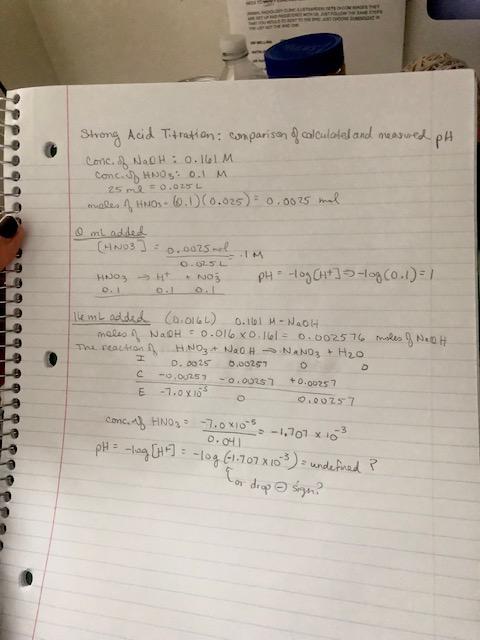 Strong Acid Titration: comparison of calculated and measured pH
Conc. of NaOH: 0.161 M
Conc. of HNO3: 0.1 M
25 ml = 0.025 L
moles of HNO3 = (0.1)(0.025) = 0.0025 mol
0 mL added
[HNO3] = 0.0025 mol / 0.025 L = .1 M
HNO3 → H+ + NO3-
0.1 0.1 0.1
pH = -log[H+] ⇒ -log(0.1) = 1
16 mL added (0.016L) 0.161 M - NaOH
moles of NaOH = 0.016 x 0.161 = 0.002576 moles of NaOH
The reaction of HNO3 + NaOH → NaNO3 + H2O
I 0.0025 0.00257 0 0
C -0.00257 -0.00257 +0.00257
E -7.0 x 10^-5 0 0.00257
conc. of HNO3 = -7.0 x 10^-5 / 0.041 = -1.707 x 10^-3
pH = -log[H+] = -log(-1.707 x 10^-3) = undefined ?
or drop ⊖ sign?